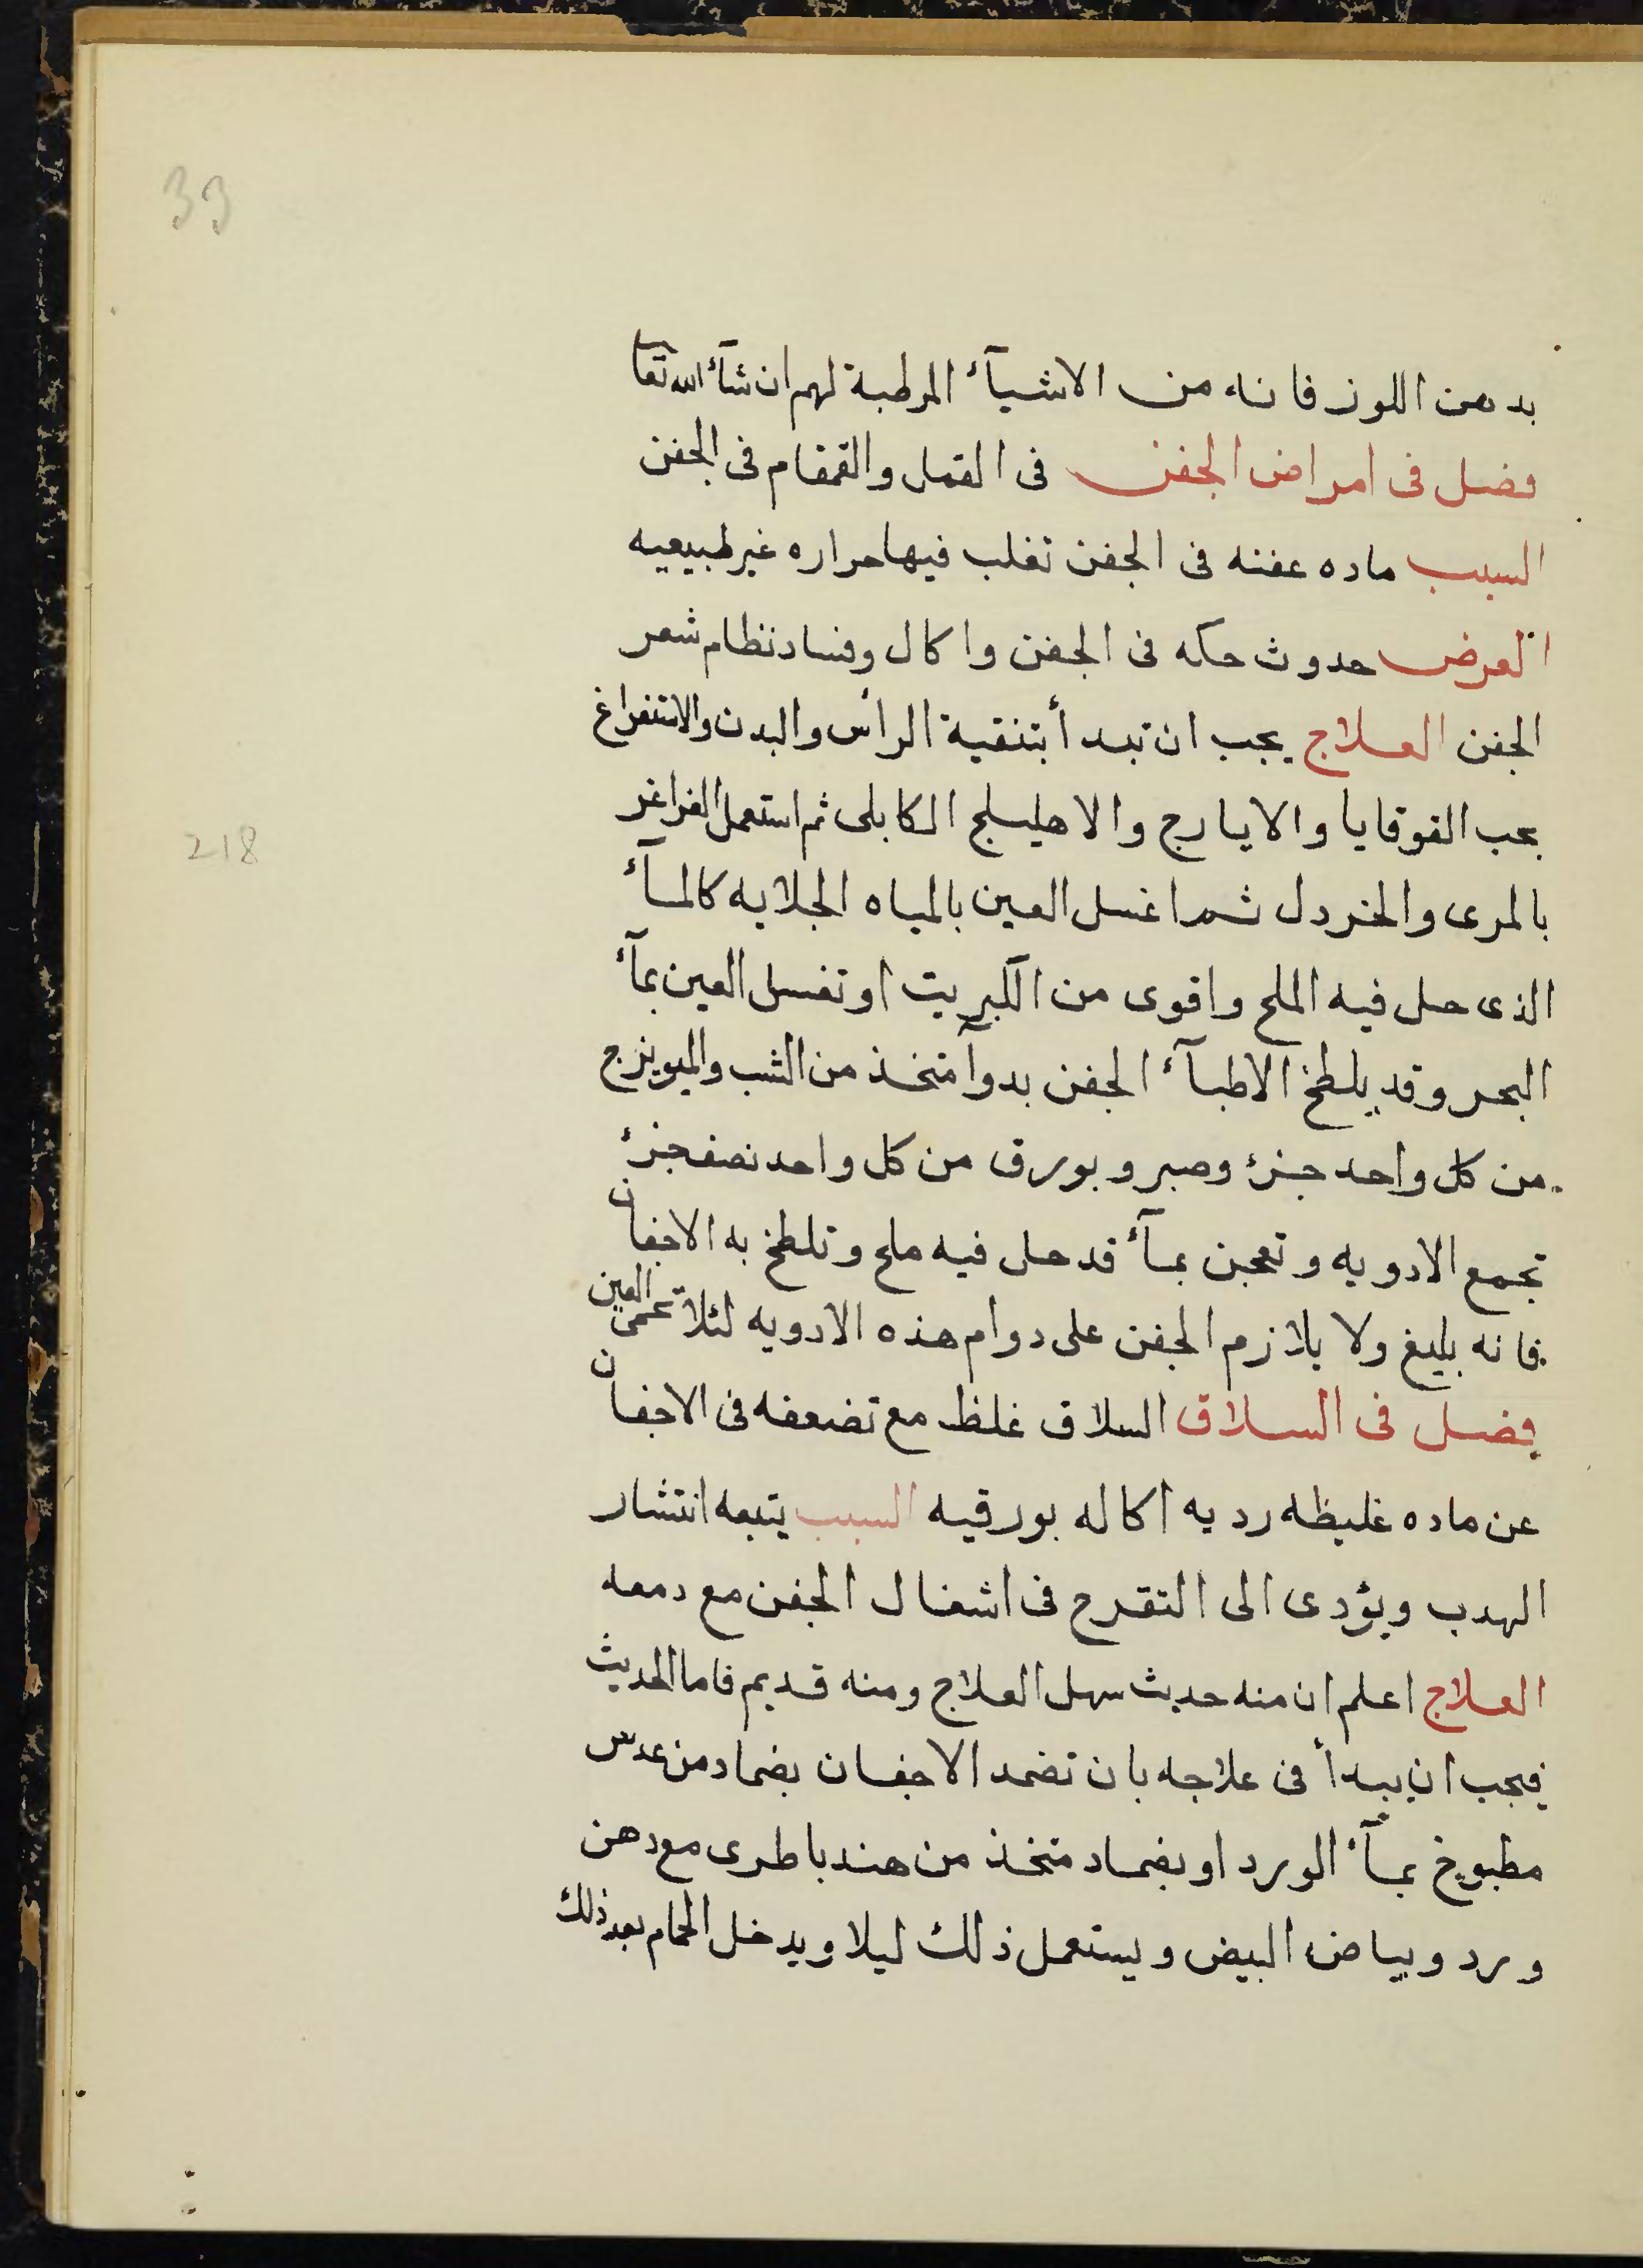 33
بدهن اللوز فانه من الاشيآء المرطبة لهم ان شآء الله تعا
فصل فى امراض الجفن فى القمل والقمقام فى الجفن
السبب ماده عفنه فى الجفن تغلب فيها حراره غير طبيعيه
العرض حدوث حكه فى الجفن واكال وفساد نظام شعر
الجفن العلاج يجب ان تبدأ بتنقية الرأس والبدن والاستفراغ
بحب القوقايا والايارج والاهليلج الكابلى ثم استعمل الغراغر
بالمرى والخردل ثم اغسل العين بالمياه الجلايه كالمآء
الذى حل فيه الملح واقوى من الكبريت او تغسل العين بمآء
البحر وقد يلطخ الاطبآء الجفن بدوآ متخذ من الشب والميويزج
من كل واحد جزء وصبر وبورق من كل واحد نصف جزء
تجمع الادويه وتعجن بمآء قد حل فيه ملح وتلطخ به الاجفان
فانه بليغ ولا يلازم الجفن على دوام هذه الادويه لئلا تحمى العين
فصل فى السلاق السلاق غلظ مع تضعفه فى الاجفان
عن ماده غليظه رديه اكاله بورقيه السبب يتبعه انتشار
الهدب ويؤدى الى التقرح فى اشفال الجفن مع دمعه
العلاج اعلم ان منه حديث سهل العلاج ومنه قديم فاما الحديث
فيجب ان يبدأ فى علاجه بان تضمد الاجفان بضماد من عدس
مطبوخ بمآء الورد او بضماد متخذ من هندبا طرى مع دهن
ورد وبياض البيض ويستعمل ذلك ليلا ويدخل الحمام بعد ذلك
218